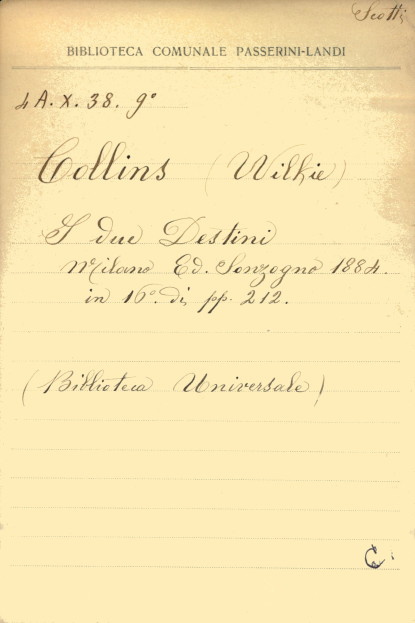 Scotti
BIBLIOTECA COMUNALE PASSERINI-LANDI
4 A. X. 38. 9º
Collins (Wilkie)
I due Destini
Milano Ed. Sonzogno 1884.
in 16º. di pp. 212.
(Biblioteca Universale)
C.